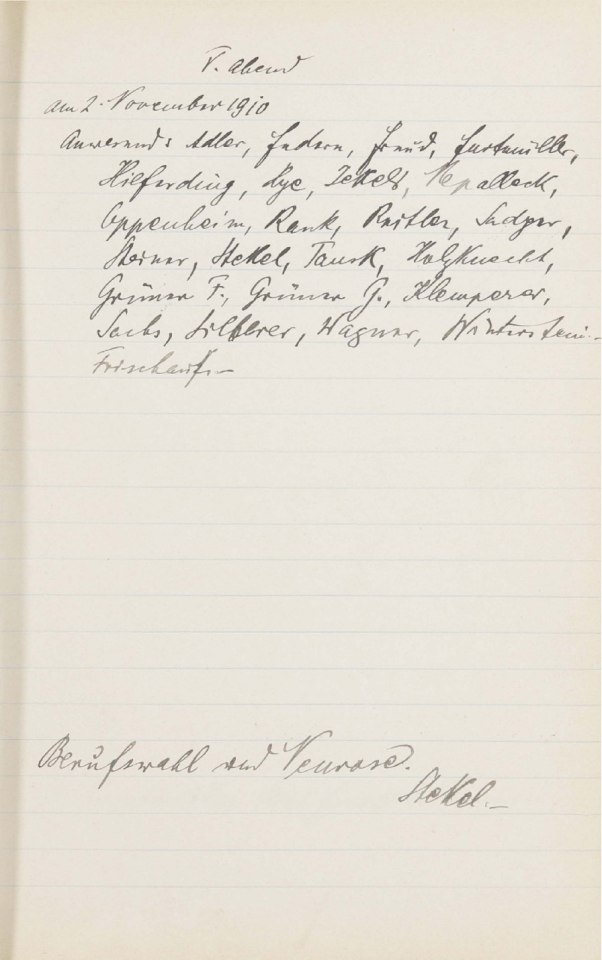 V. Abend
am 2. November 1910
Anwesend: Adler, Federn, Freud, Furtmüller,
Hilferding, Hye, Jekels, Nepalleck,
Oppenheim, Rank, Reitler, Sadger,
Steiner, Stekel, Tausk, Holzknecht,
Grüner F., Grüner G., Klemperer,
Sachs, Silberer, Wagner, Winterstein.–
Frischauf.–
Berufswahl und Neurose.
Stekel.–